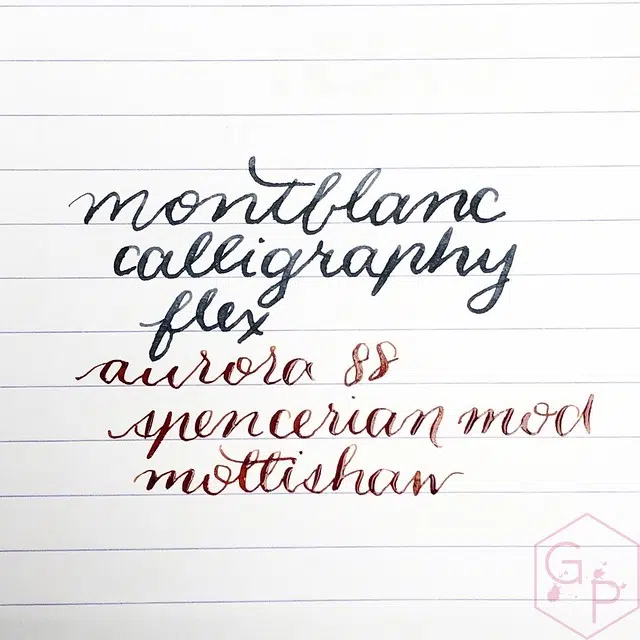 montblanc
calligraphy
flex
aurora 88
spencerian mod
mottishaw
G P